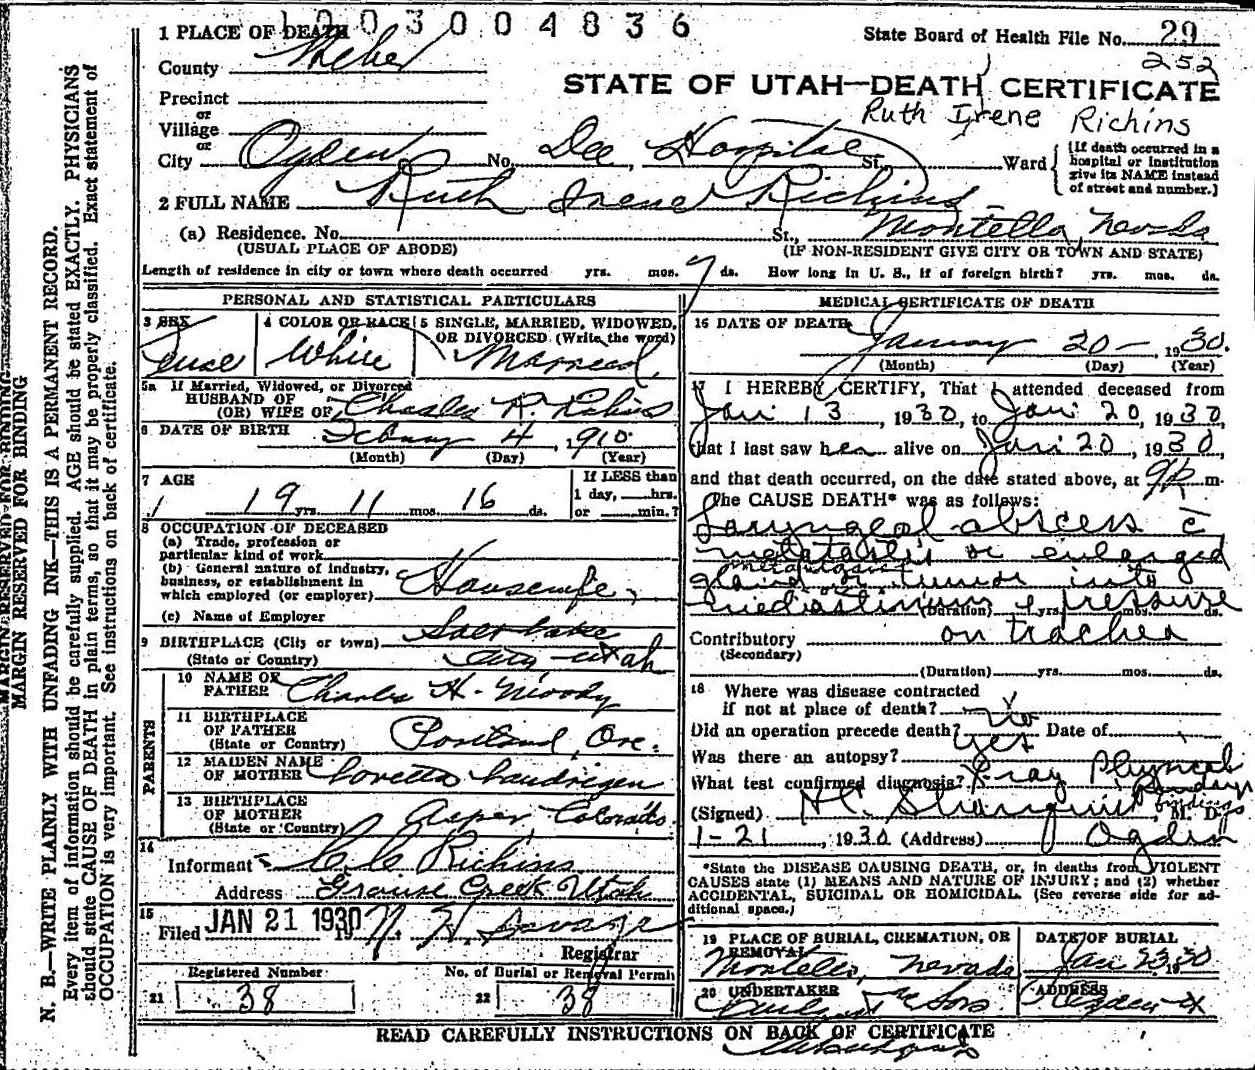 1003004836
1 PLACE OF DEATH
State Board of Health File No. 29
252
County Weber
STATE OF UTAH—DEATH CERTIFICATE
Precinct
Ruth Irene Richins
or
Village
or
City Ogden No. Dee Hospital St., Ward
(If death occurred in a hospital or institution give its NAME instead of street and number.)
2 FULL NAME Ruth Irene Richins
(a) Residence. No. St., Montella, Nevada
(USUAL PLACE OF ABODE) (IF NON-RESIDENT GIVE CITY OR TOWN AND STATE)
Length of residence in city or town where death occurred yrs. mos. 7 ds. How long in U. S., if of foreign birth? yrs. mos. ds.
PERSONAL AND STATISTICAL PARTICULARS
3 SEX
4 COLOR OR RACE White
5 SINGLE, MARRIED, WIDOWED, OR DIVORCED (Write the word) Married
5a If Married, Widowed, or Divorced
HUSBAND OF
(OR) WIFE OF Charles
6 DATE OF BIRTH 4, 1910
(Month) (Day) (Year)
7 AGE 19 yrs. 11 mos. 16 ds.
If LESS than
1 day, hrs.
or min.?
8 OCCUPATION OF DECEASED
(a) Trade, profession or
particular kind of work
(b) General nature of industry,
business, or establishment in
which employed (or employer) Housewife
(c) Name of Employer
9 BIRTHPLACE (City or town) Salt Lake
(State or Country) City Utah
PARENTS
10 NAME OF FATHER Charles H. Moody
11 BIRTHPLACE OF FATHER
(State or Country) Portland, Ore.
12 MAIDEN NAME OF MOTHER Loretta Landrigen
13 BIRTHPLACE OF MOTHER
(State or Country) Colorado
14
Informant Richins
Address Grouse Creek Utah
15
Filed JAN 21 1930 19 H. Savage
Registrar
Registered Number No. of Burial or Removal Permit
21 38 22 38
MEDICAL CERTIFICATE OF DEATH
16 DATE OF DEATH January 20 – , 1930.
(Month) (Day) (Year)
I HEREBY CERTIFY, That I attended deceased from
Jan 13, 1930, to Jan 20, 1930,
that I last saw her alive on Jan 20, 1930,
and that death occurred, on the date stated above, at 9 P m.
The CAUSE DEATH* was as follows:
Laryngeal abscess c̄
metastasis or enlarged
gland or tumor into
mediastinum c̄ pressure
(Duration) yrs. mos. ds.
Contributory on trachea
(Secondary)
(Duration) yrs. mos. ds.
18 Where was disease contracted
if not at place of death?
Did an operation precede death? No Date of
Was there an autopsy? Yes
What test confirmed diagnosis? X-ray Physical
findings
(Signed) H. C. Stranquist, M. D.
1-21, 1930 (Address) Ogden
*State the DISEASE CAUSING DEATH, or, in deaths from VIOLENT
CAUSES state (1) MEANS AND NATURE OF INJURY; and (2) whether
ACCIDENTAL, SUICIDAL OR HOMICIDAL. (See reverse side for ad-
ditional space.)
19 PLACE OF BURIAL, CREMATION, OR REMOVAL Montello, Nevada
DATE OF BURIAL Jan 23 1930
20 UNDERTAKER & Sons
ADDRESS Ogden
READ CAREFULLY INSTRUCTIONS ON BACK OF CERTIFICATE
MARGIN RESERVED FOR BINDING
MARGIN RESERVED FOR BINDING
N. B.—WRITE PLAINLY WITH UNFADING INK—THIS IS A PERMANENT RECORD.
Every item of information should be carefully supplied. AGE should be stated EXACTLY. PHYSICIANS
should state CAUSE OF DEATH in plain terms, so that it may be properly classified. Exact statement of
OCCUPATION is very important. See instructions on back of certificate.